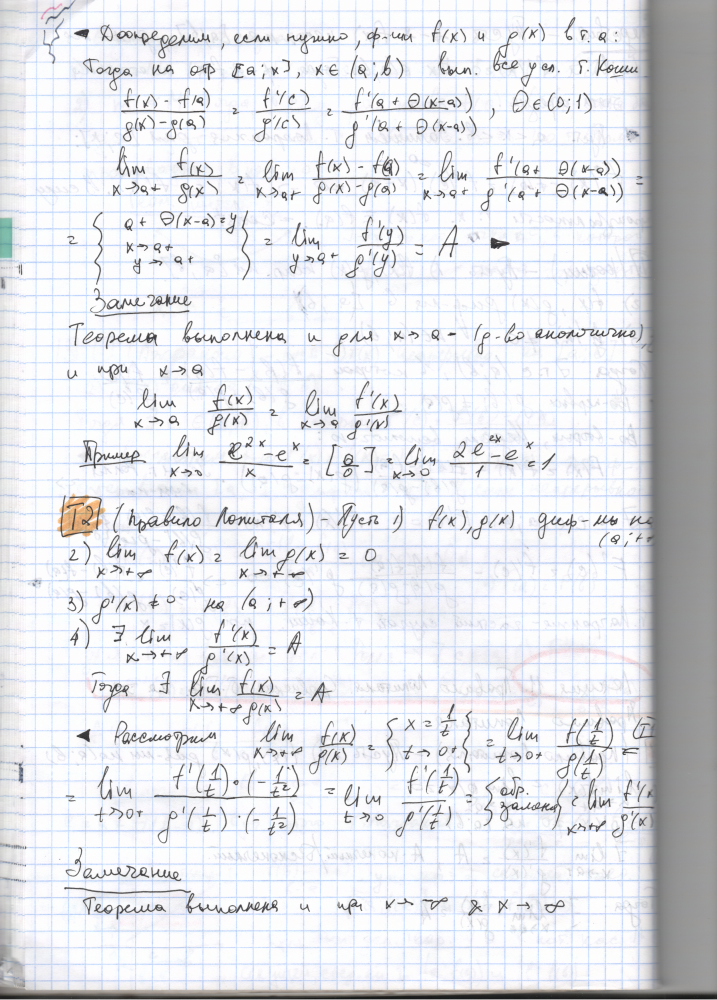 ◄ Доопределим, если нужно, ф-ии f(x) и g(x) в т. a:
Тогда на отр [a;x], x∈(a;b) вып. все усл. т. Коши
(f(x) - f(a))/(g(x) - g(a)) = f'(c)/g'(c) = f'(a + Θ(x-a))/g'(a + Θ(x-a)), Θ∈(0;1)
lim x→a+ f(x)/g(x) = lim x→a+ (f(x) - f(a))/(g(x) - g(a)) = lim x→a+ f'(a + Θ(x-a))/g'(a + Θ(x-a)) =
= { a + Θ(x-a) = y x→a+ y→a+ } = lim y→a+ f'(y)/g'(y) = A ►
Замечание
Теорема выполнена и для x→a- (д-во аналогично),
и при x→a
lim x→a f(x)/g(x) = lim x→a f'(x)/g'(x)
Пример lim x→0 (e^2x - e^x)/x = [0/0] = lim x→0 (2e^2x - e^x)/1 = 1
T2 (Правило Лопиталя) - Пусть 1) f(x), g(x) диф-мы на
(a;+
2) lim x→+∞ f(x) = lim x→+∞ g(x) = 0
3) g'(x) ≠ 0 на (a;+∞)
4) ∃ lim x→+∞ f'(x)/g'(x) = A
Тогда ∃ lim x→+∞ f(x)/g(x) = A
◄ Рассмотрим lim x→+∞ f(x)/g(x) = { x = 1/t t→0+ } = lim t→0+ f(1/t)/g(1/t) =
= lim t→0+ f'(1/t)·(-1/t²)/g'(1/t)·(-1/t²) = lim t→0 f'(1/t)/g'(1/t) = { обр. замена } = lim x→+∞ f'(x)/g'(x)
Замечание
Теорема выполнена и при x→-∞ & x→∞